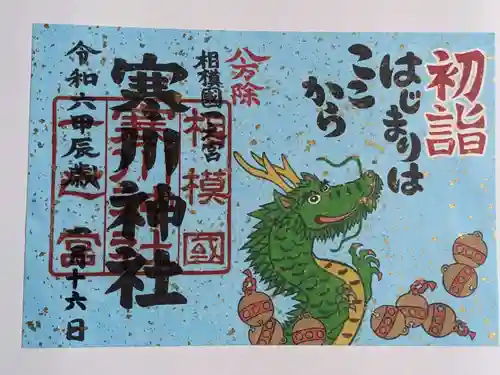 初詣
はじまりは
ここ
から
八方除
相模國一之宮
寒川神社
相模國
一之宮
令和六甲辰歳
一月十六日